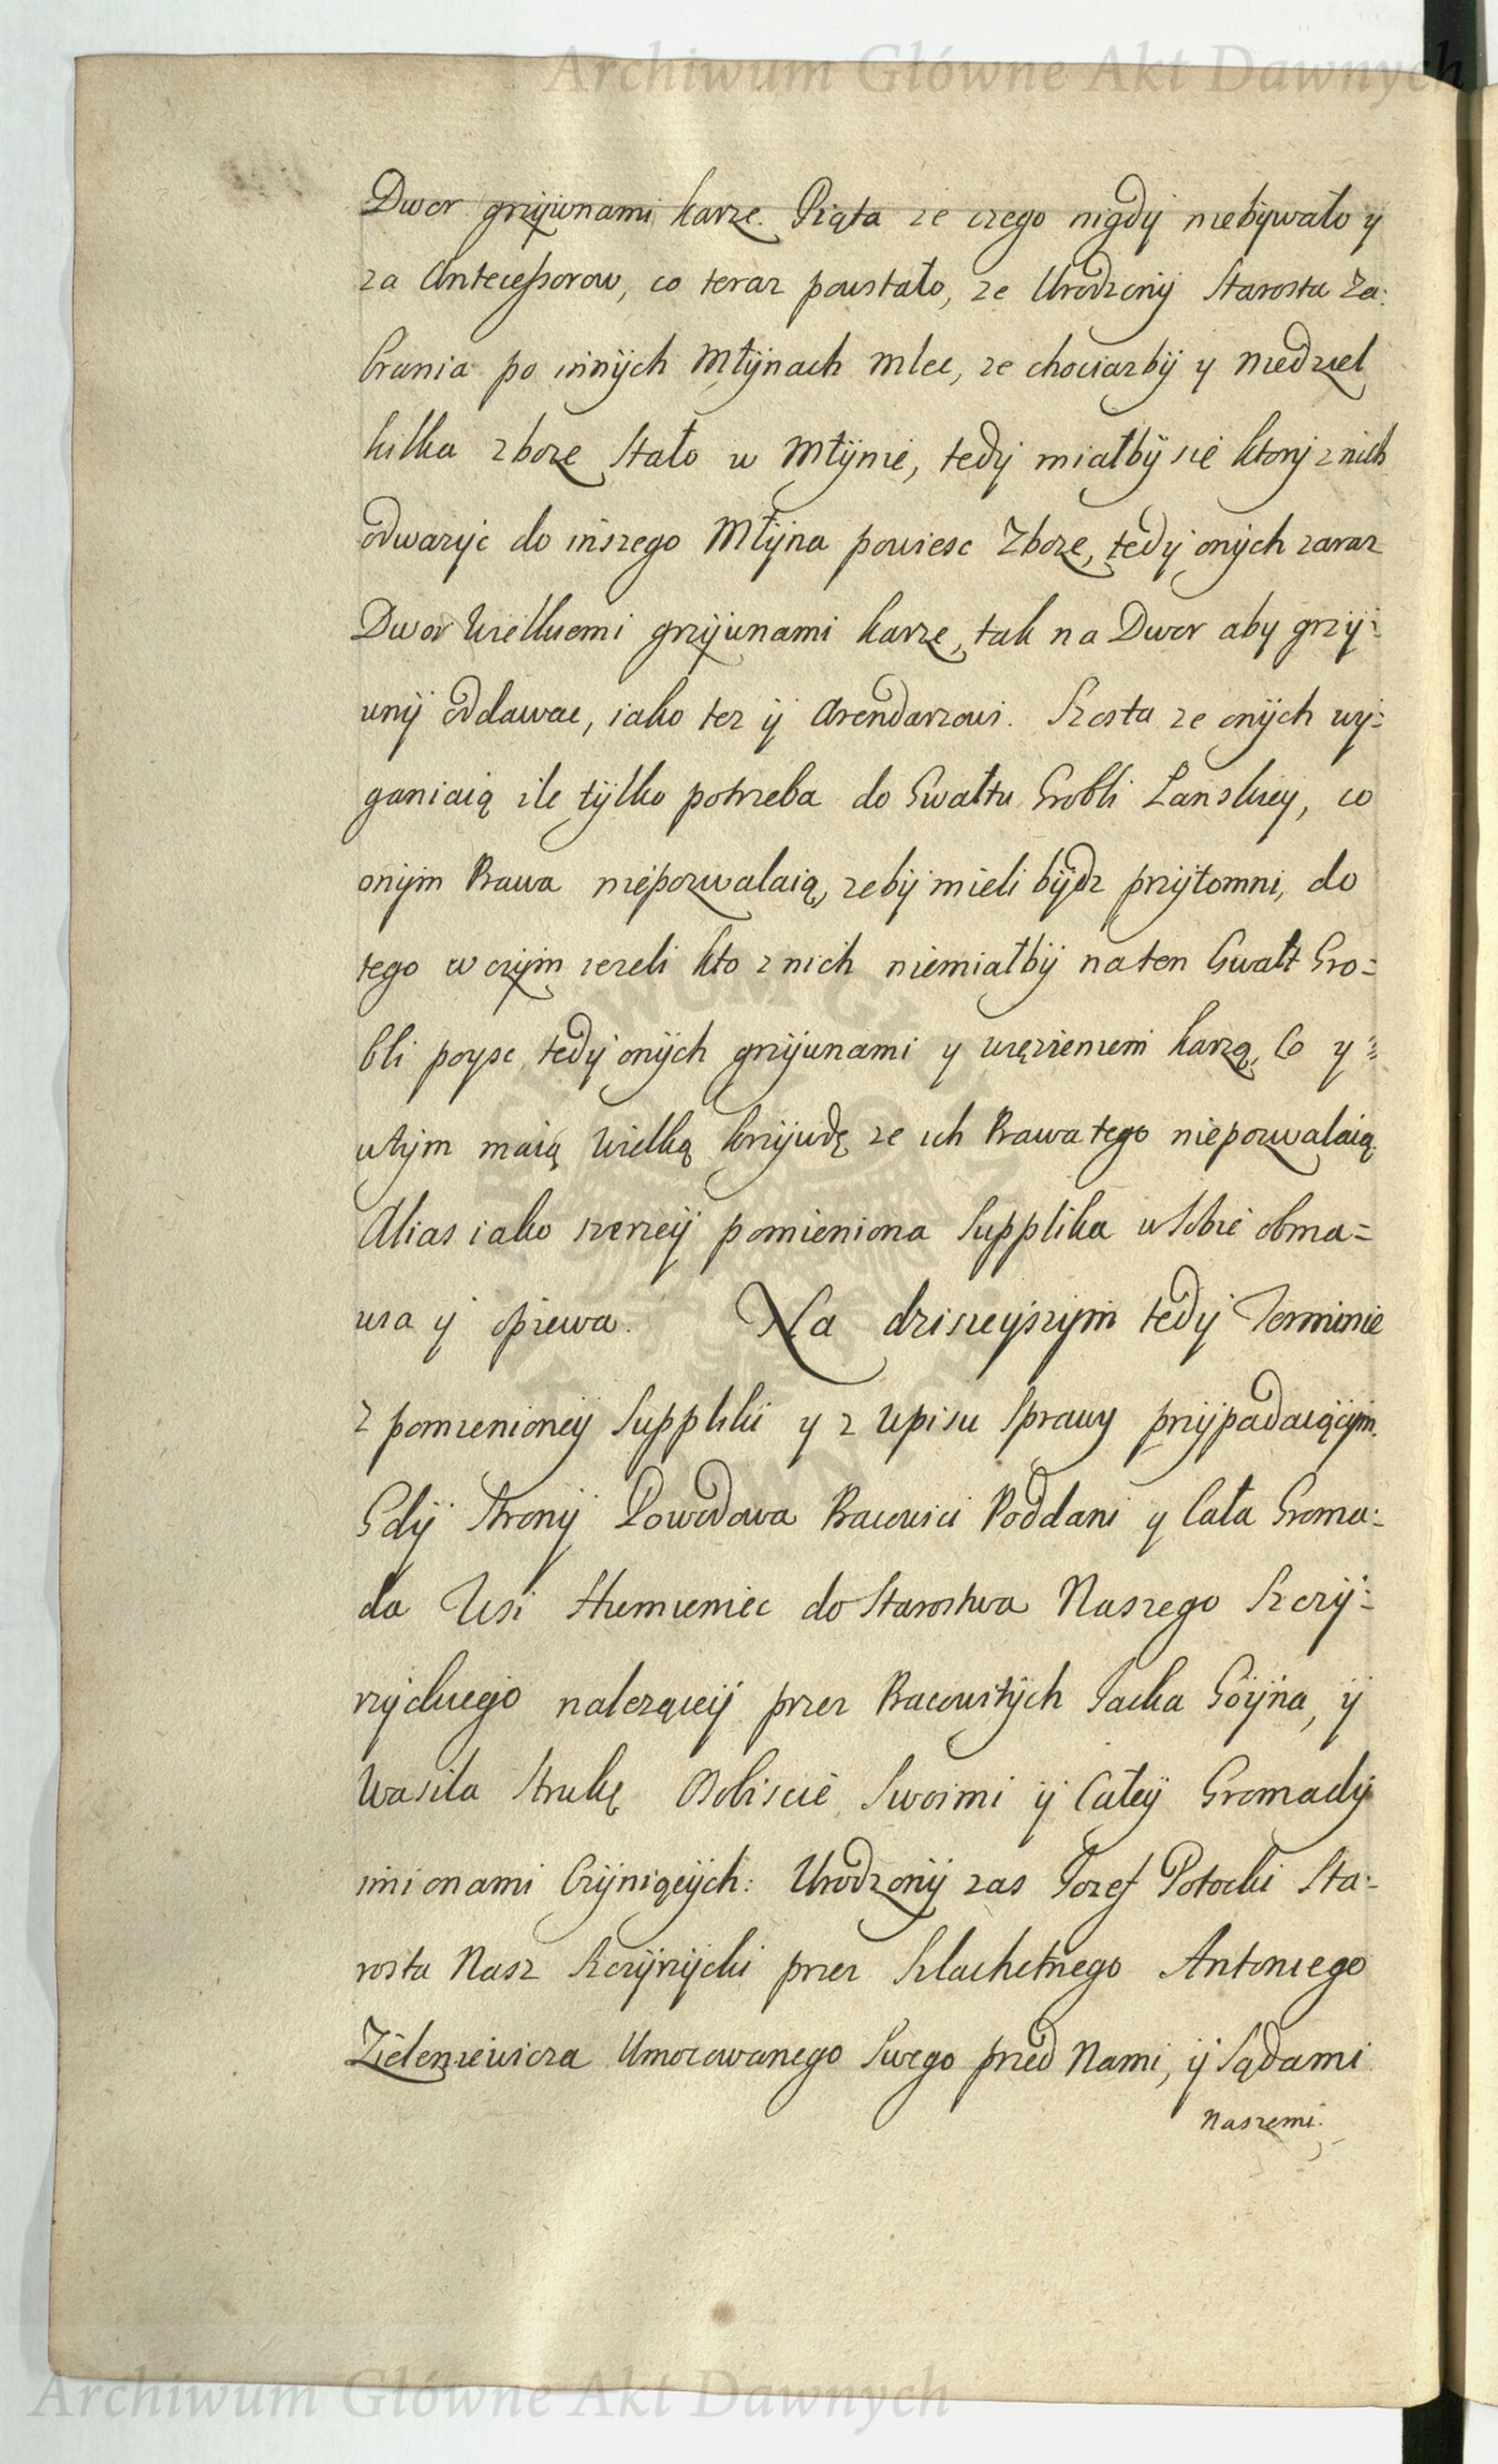 Archiwum Główne Akt Dawnych
Dwor grzywnami karze. Piąta ze czego nigdÿ niebÿwało y
za Antecessorow, co teraz powstało, ze Urodzonÿ Starosta Za:
brania po innÿch Młÿnach mlec, ze chociazbÿ y niedziel
kilka zboze stało w Młÿnie, tedÿ miałbÿ sie ktorÿ z nich
odwazÿc do inszego Młÿna powiesc Zboze, tedÿ onÿch zaraz
Dwor Wielkiemi grzÿwnami karze, tak na Dwor aby grzÿ:
wnÿ oddawac, iako tez ÿ Arendarzowi. Szosta ze onÿch wÿ:
ganiaią ile tÿlko potrzeba do Gwałtu Grobli Łanskiey, co
onÿm Prawa niepozwalaią, zebÿ mieli bÿdz przÿtomni, do
tego w czÿm iezeli kto z nich niemiałbÿ na ten Gwałt Gro=
bli poysc, tedÿ onÿch grzÿwnami y więzieniem karzą, Co y
wtÿm maią Wielką krzÿwdę ze ich Prawa tego niepozwalaią.
Alias iako szerzeÿ pomieniona Supplika wSobie obma=
wia ÿ opiewa. Na dzisieyszÿm tedÿ Terminie
z pomienioneÿ Suppliki y z Wpisu Sprawy przÿpadaiącÿm.
Gdÿ Stronÿ Powodowa Pracowici Poddani y Cała Groma:
da Wsi Humieniec do Starostwa Naszego Szczÿ:
rzÿckiego naleząceÿ przez Pracowitÿch Jacka Goÿna, ÿ
Wasila Strukę Osobiscie Swoimi ÿ Całeÿ Gromadÿ
imionami Czÿniącÿch: Urodzonÿ zas Jozef Potocki Sta:
rosta Nasz Szczÿrzÿcki przez Szlachetnego Antoniego
Zieleniewicza Umocowanego Swego przed Nami, ÿ Sądami
Naszemi.
Archiwum Główne Akt Dawnych